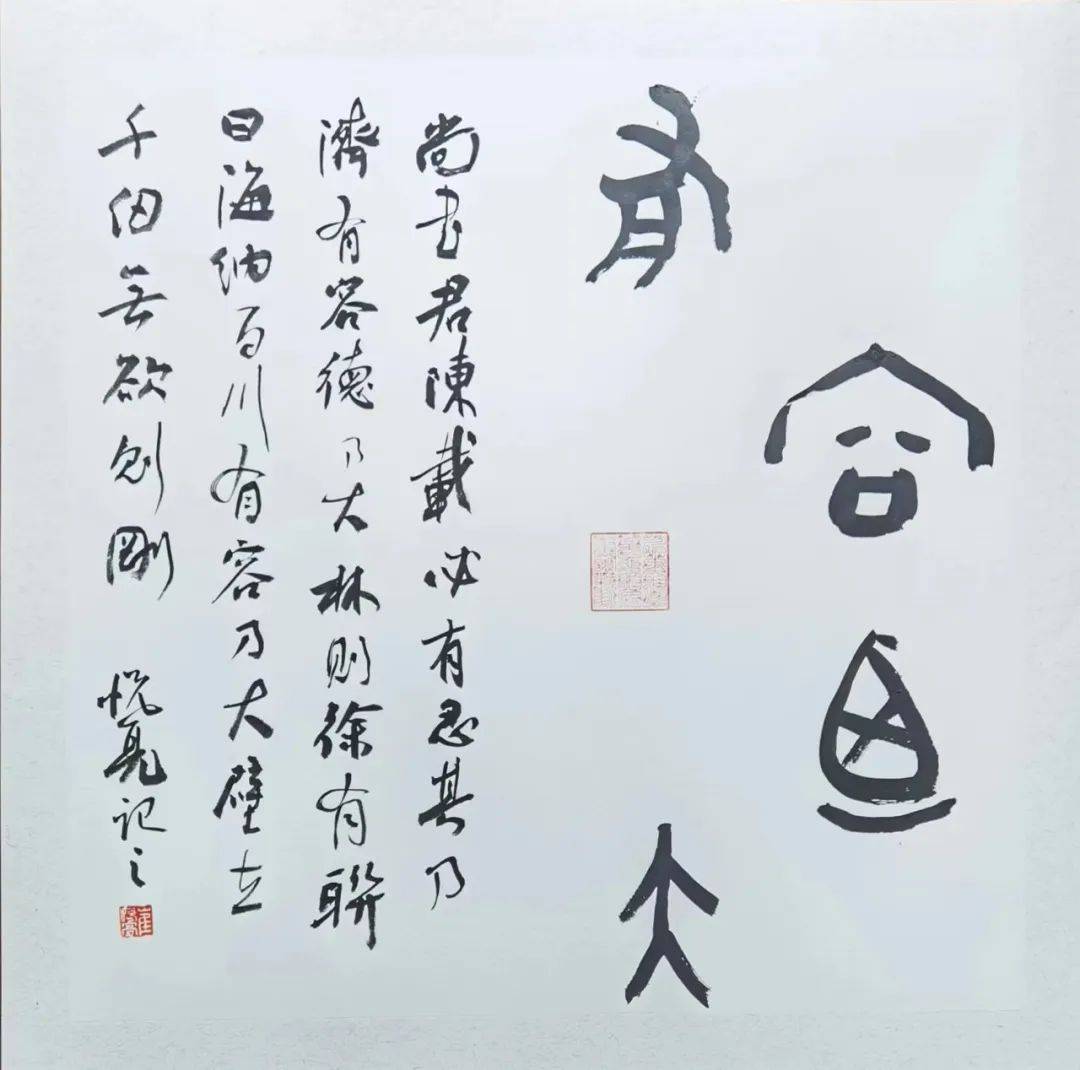 有容迺大
尚书君陳載必有忍其乃
濟有容德乃大林则徐有聯
曰海纳百川有容乃大壁立
千仞無欲则剛 悦亮记之